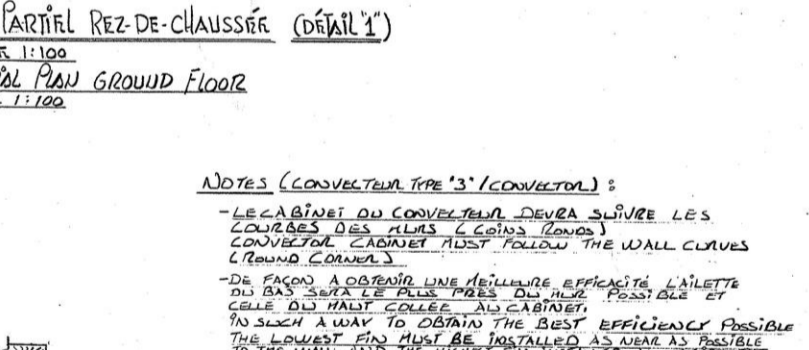 PARTIEL REZ-DE-CHAUSSÉE (DÉTAIL "1")
1:100
PLAN GROUND FLOOR
1:100
NOTES (CONVECTEUR TYPE "3" / CONVECTOR) :
- LE CABINET DU CONVECTEUR DEVRA SUIVRE LES
COURBES DES MURS (COINS RONDS)
CONVECTOR CABINET MUST FOLLOW THE WALL CURVES
(ROUND CORNER)
- DE FAÇON A OBTENIR UNE MEILLEURE EFFICACITÉ L'AILETTE
DU BAS SERA LE PLUS PRES DU MUR POSSIBLE ET
CELLE DU HAUT COLLEE AU CABINET.
IN SUCH A WAY TO OBTAIN THE BEST EFFICIENCY POSSIBLE
THE LOWEST FIN MUST BE INSTALLED AS NEAR AS POSSIBLE
TO THE WALL AND THE